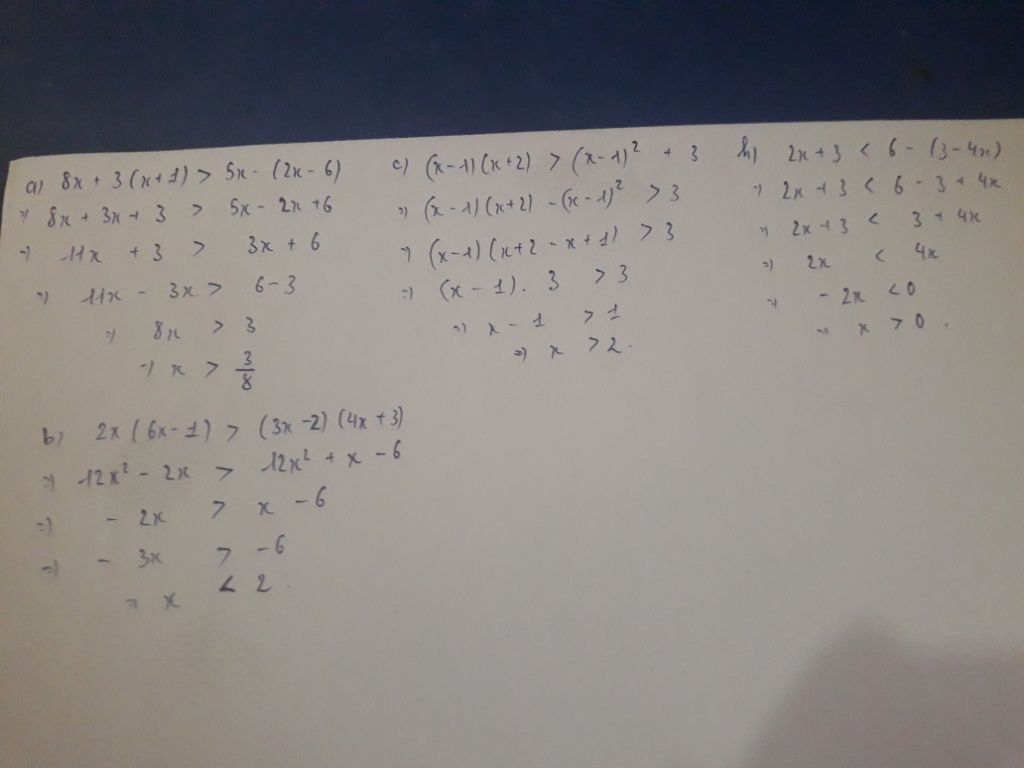 a) 8x + 3(x+1) > 5x - (2x - 6)
=) 8x + 3x + 3 > 5x - 2x + 6
=) 11x + 3 > 3x + 6
=) 11x - 3x > 6 - 3
=) 8x > 3
=) x > 3/8
b) 2x(6x-1) > (3x-2)(4x+3)
=) 12x² - 2x > 12x² + x - 6
=) - 2x > x - 6
=) - 3x > -6
=) x < 2.
c) (x-1)(x+2) > (x-1)² + 3
=) (x-1)(x+2) - (x-1)² > 3
=) (x-1)(x+2 - x+1) > 3
=) (x - 1). 3 > 3
=) x - 1 > 1
=) x > 2.
h) 2x+3 < 6 - (3-4x)
=) 2x+3 < 6 - 3 + 4x
=) 2x+3 < 3 + 4x
=) 2x < 4x
=) - 2x < 0
=) x > 0.